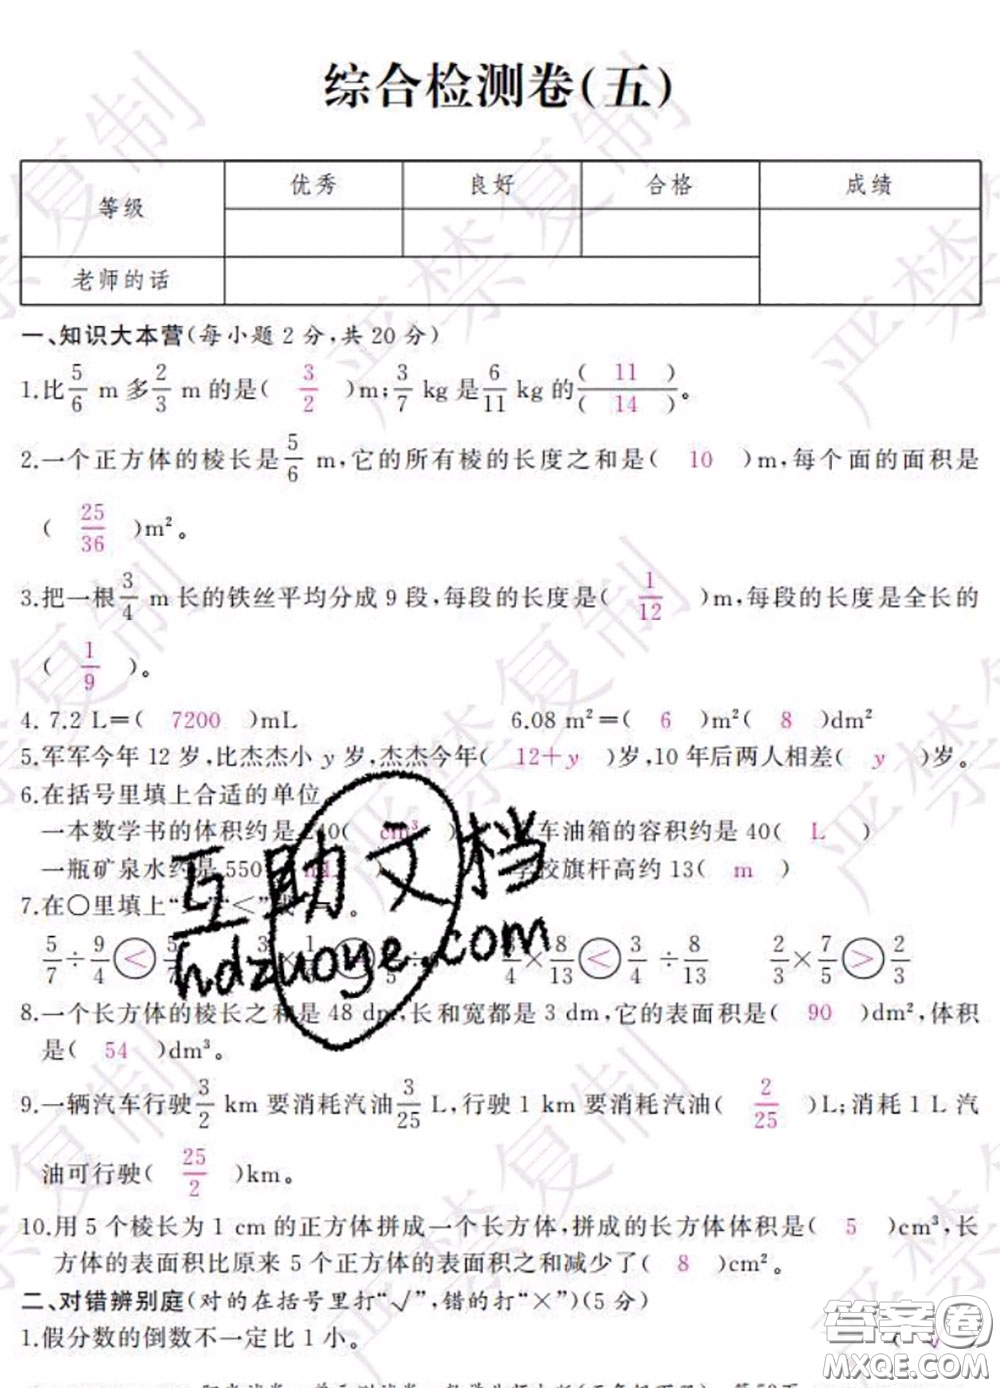 综合检测卷(五)
等级 优秀 良好 合格 成绩
老师的话
一、知识大本营(每小题2分,共20分)
1.比5/6 m多2/3 m的是( 3/2 )m;3/7 kg是6/11 kg的( 11 )/( 14 )。
2.一个正方体的棱长是5/6 m,它的所有棱的长度之和是( 10 )m,每个面的面积是
( 25/36 )m²。
3.把一根3/4 m长的铁丝平均分成9段,每段的长度是( 1/12 )m,每段的长度是全长的
( 1/9 )。
4. 7.2 L=( 7200 )mL 6.08 m²=( 6 )m²( 8 )dm²
5.军军今年12岁,比杰杰小y岁,杰杰今年( 12+y )岁,10年后两人相差( y )岁。
6.在括号里填上合适的单位
一本数学书的体积约是240( cm³ 车油箱的容积约是40( L )
一瓶矿泉水约是550 ) 学校旗杆高约13( m )
7.在○里填上“ ”“<”或“=”。
5/7÷9/4 < 5/7 3/4×8/13 < 3/4÷8/13 2/3×7/5 > 2/3
8.一个长方体的棱长之和是48 dm,长和宽都是3 dm,它的表面积是( 90 )dm²,体积
是( 54 )dm³。
9.一辆汽车行驶3/2 km要消耗汽油3/25 L,行驶1 km要消耗汽油( 2/25 )L;消耗1 L汽
油可行驶( 25/2 )km。
10.用5个棱长为1 cm的正方体拼成一个长方体,拼成的长方体体积是( 5 )cm³,长
方体的表面积比原来5个正方体的表面积之和减少了( 8 )cm²。
二、对错辨别庭(对的在括号里打“√”,错的打“×”)(5分)
1.假分数的倒数不一定比1小。 ( √
互助文档
hdzuoye.com
答案圈
MXQE.COM
严禁复制
严禁复制
严禁复制
严禁复制